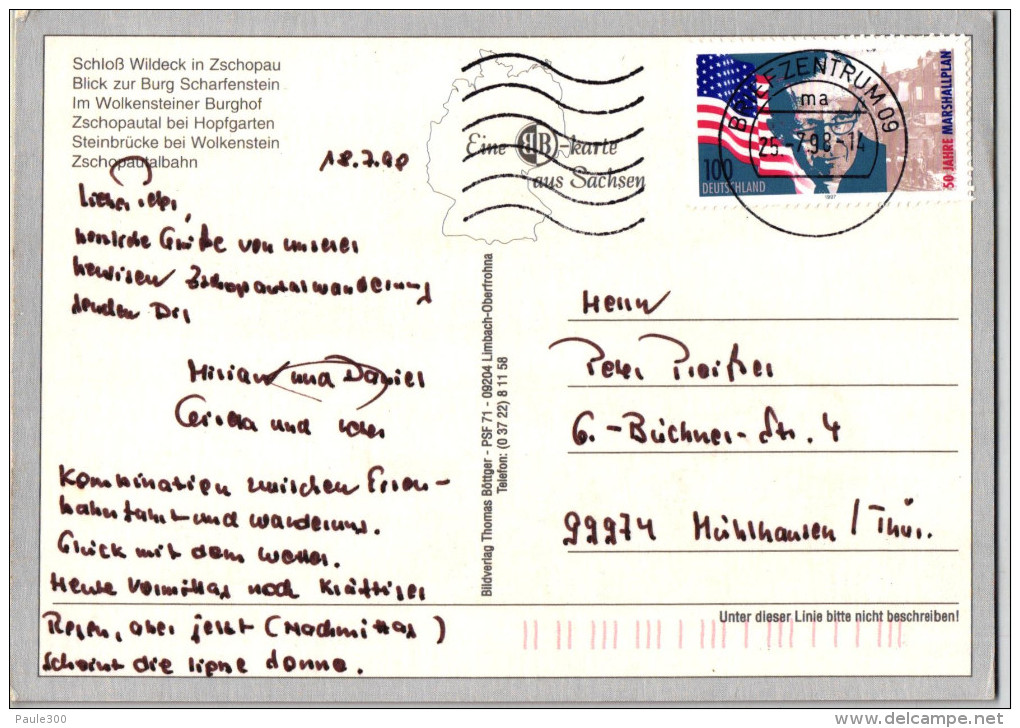 Schloß Wildeck in Zschopau
Blick zur Burg Scharfenstein
Im Wolkensteiner Burghof
Zschopautal bei Hopfgarten
Steinbrücke bei Wolkenstein
Zschopautalbahn
18.7.98
Eine BB-karte
aus Sachsen
BRIEFZENTRUM 09
ma
25.-7.98-14
100
DEUTSCHLAND
1997
50 JAHRE MARSHALLPLAN
Lieber Peter,
herzliche Grüße von unserer
heutigen Zschopautalwanderung
senden Dir
Miriam und Daniel
Gerda und
Kombination zwischen Eisen-
bahnfahrt und Wanderung.
Glück mit dem Wetter.
Heute Vormittag noch kräftiger
Regen, aber jetzt (Nachmittag)
scheint die liebe Sonne.
Bildverlag Thomas Böttger - PSF 71 - 09204 Limbach-Oberfrohna
Telefon: (0 37 22) 8 11 58
Herrn
Peter Preißer
G.-Büchner-Str. 4
99974 Mühlhausen/Thür.
Unter dieser Linie bitte nicht beschreiben!
Paule300
www.delcampe.net